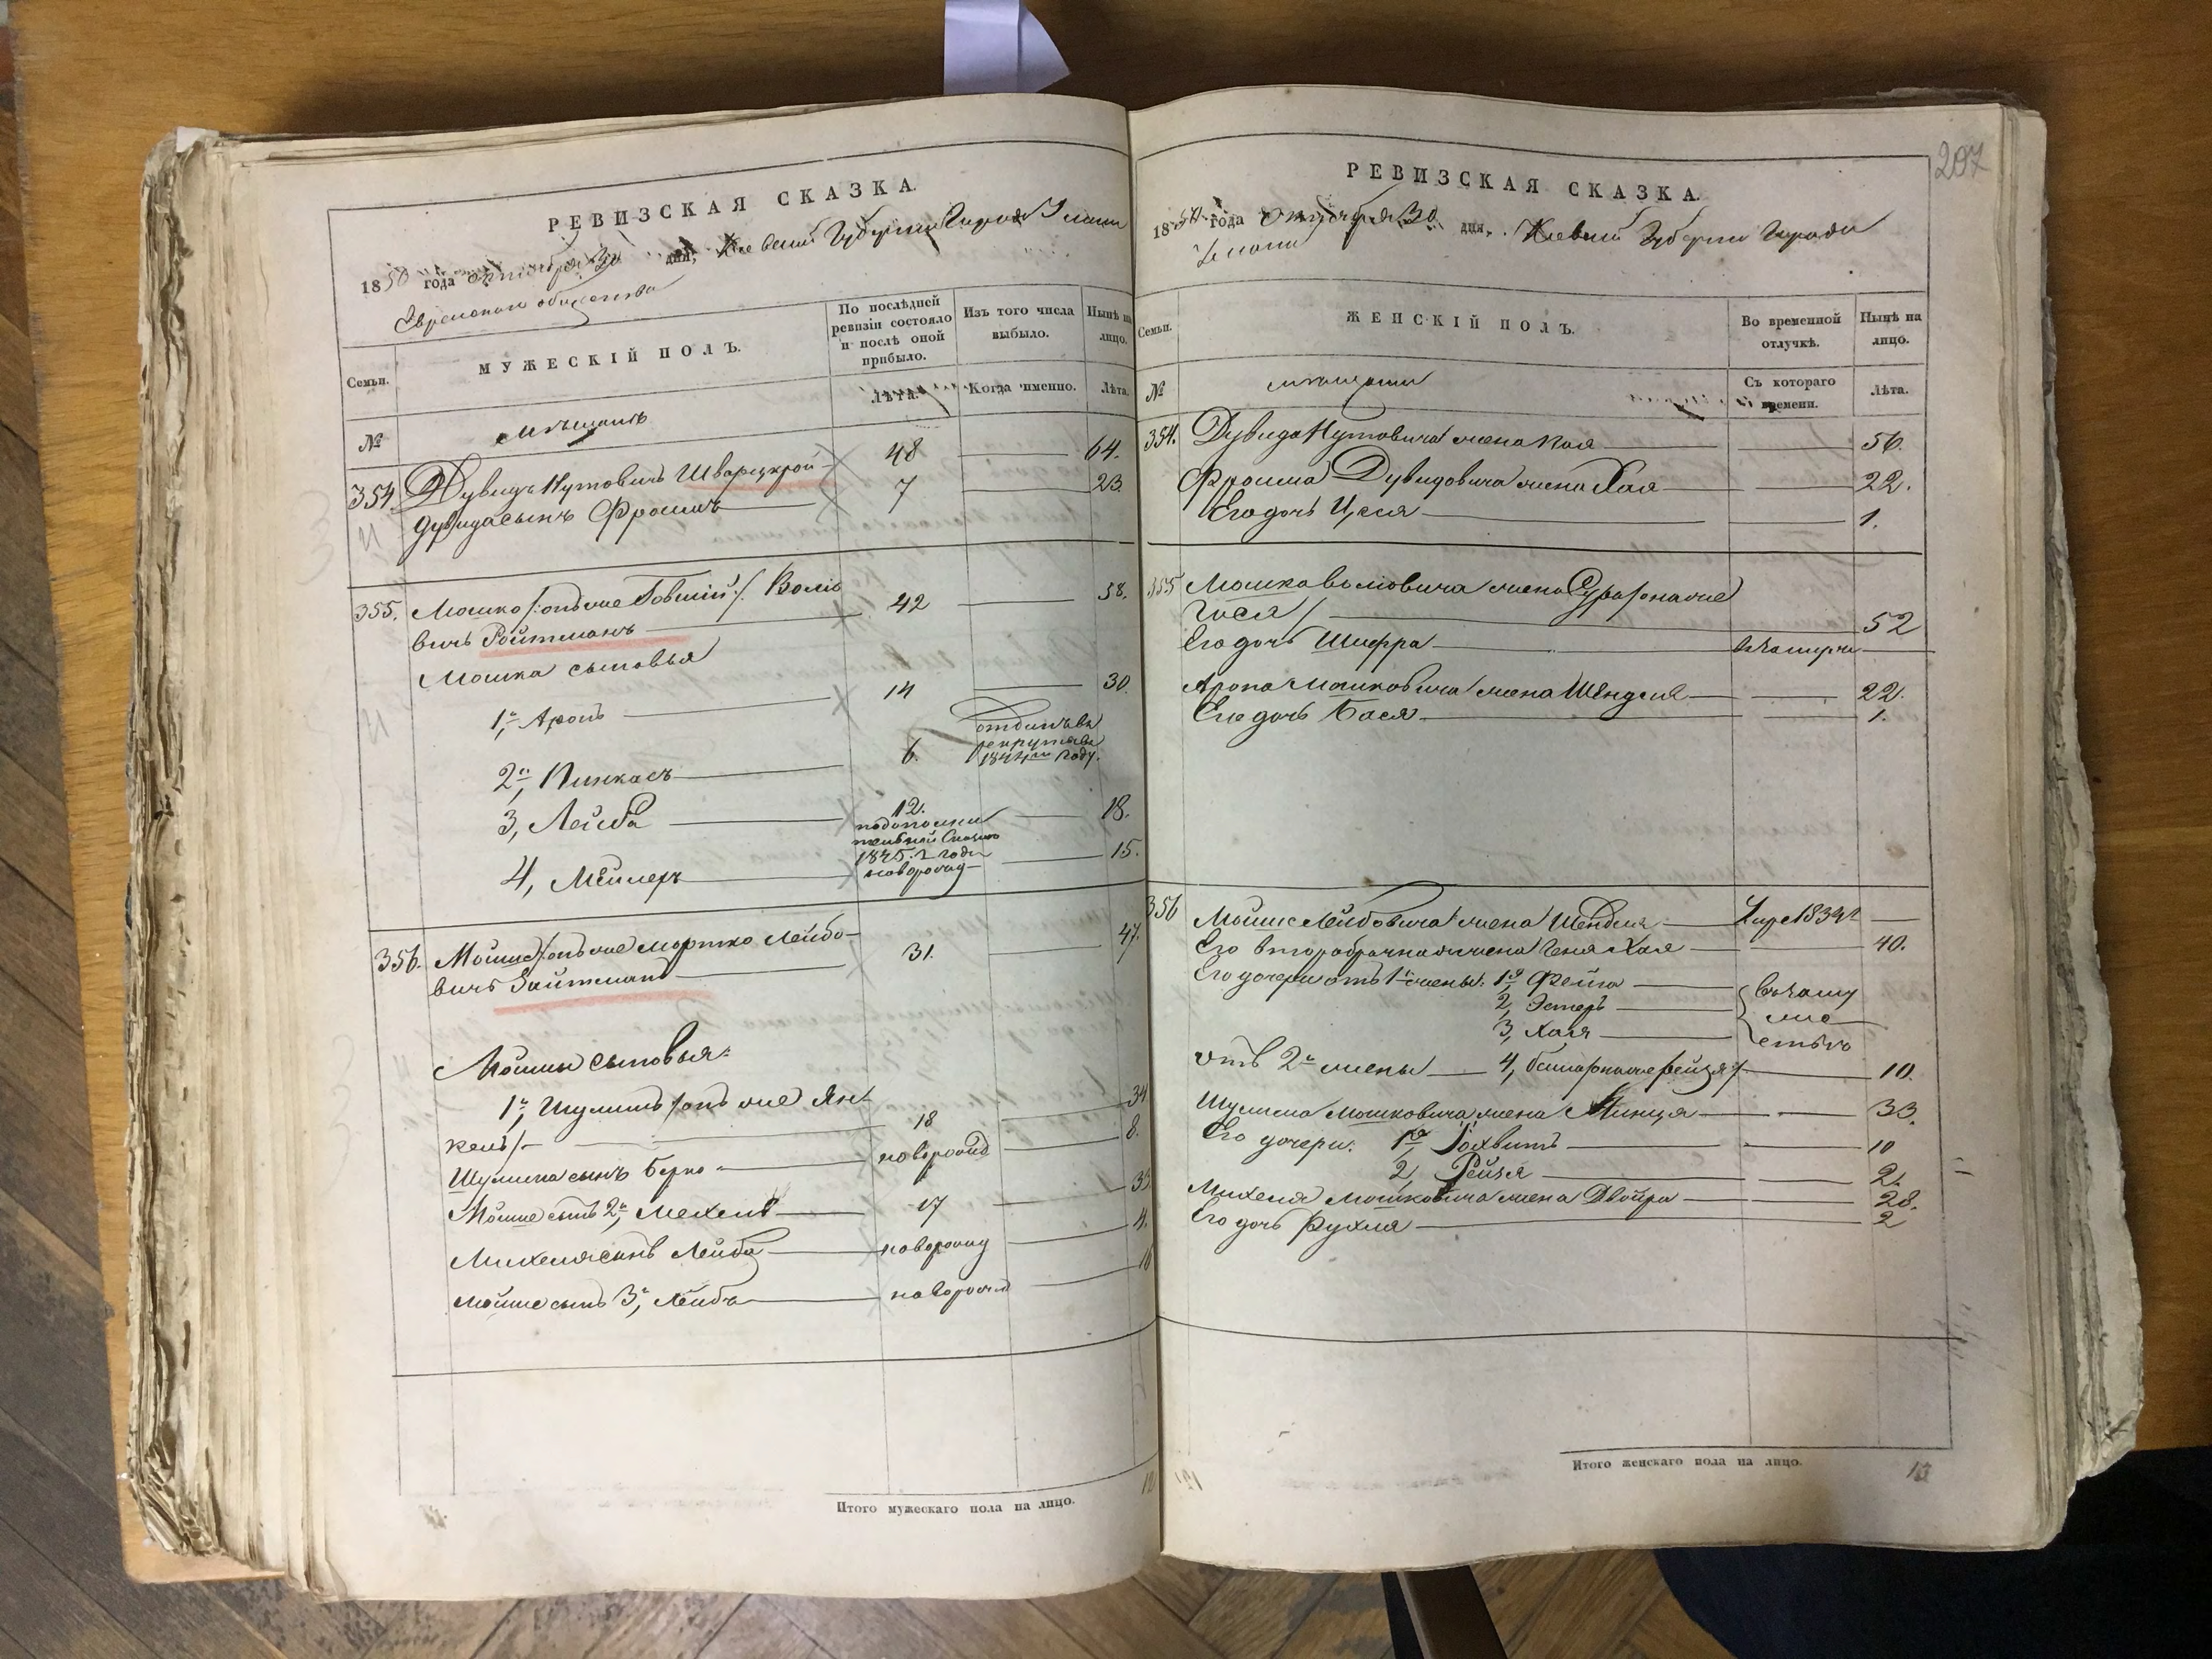 РЕВИЗСКАЯ СКАЗКА.
1850 года октября 30 дня, Киевской Губернии Города Умани
Еврейского общества
Семьи.
МУЖЕСКІЙ ПОЛЪ.
По послѣдней ревизіи состояло и послѣ оной прибыло.
Изъ того числа выбыло.
Нынѣ на лицо.
№
мѣщанъ
Лѣта.
Когда именно.
Лѣта.
354. Дувидъ Нутовичъ Шварцкрой 48 64.
Дувида сынъ Фроимъ 7 23.
355. Мошко /: онъ же Говшій :/ Волко
вичъ Ройтманъ 42 58.
Мошка сыновья
1й, Аронъ 14 30.
2й, Пинкасъ 6. отданъ въ
рекруты въ
1844м году.
3, Лейба 12. 18.
по дополни
тельной Сказке
1845. г года
4, Мейлеръ новорожд 15.
356. Мойше /: онъ же Мортко Лейбо-
вичъ Зайтманъ 31. 47.
Мойши сыновья:
1й, Шулимъ /: онъ же Ян-
кель :/ 18 34
Шулима сынъ Берко новорожд 8.
Мойше сынъ 2й, Мехель 17 33
Михеля сынъ Лейба новорожд 4.
Мойше сынъ 3й, Лейбъ новорожд 16
Итого мужескаго пола на лицо. 12
207
РЕВИЗСКАЯ СКАЗКА.
1850 года Октября 30 дня, Киевской Губернии Города
Умани
Семьи.
ЖЕНСКІЙ ПОЛЪ.
Во временной отлучкѣ.
Нынѣ на лицо.
№
мѣщанки
Съ котораго времени.
Лѣта.
354. Дувида Нутовича жена Кая 56.
Фроима Дувидовича жена Хая 22.
Его дочь Цеся 1.
355 Мошка Волковича жена Сура /: она же
Гися :/ 52
Его дочь Шифра въ замужи
Арона Мошковича жена Шендля 22.
Его дочь Бася 1.
356 Мойше Лейбовича жена Шендля Умре 1834 г
Его второбрачная жена Геня Хая 40.
Его дочери отъ 1й жены: 1я Фейга въ заму
2, Эстеръ же
3, Хая ствѣ
Отъ 2й жены 4, Бейла /: она же Рейзя :/ 10.
Шулима Мошковича жена Минця 33.
Его дочери: 1я Иохвитъ 10
2, Рейзя 2.
Михеля Мошковича жена Двойра 28.
Его дочь Рухля 2
Итого женскаго пола на лицо. 13